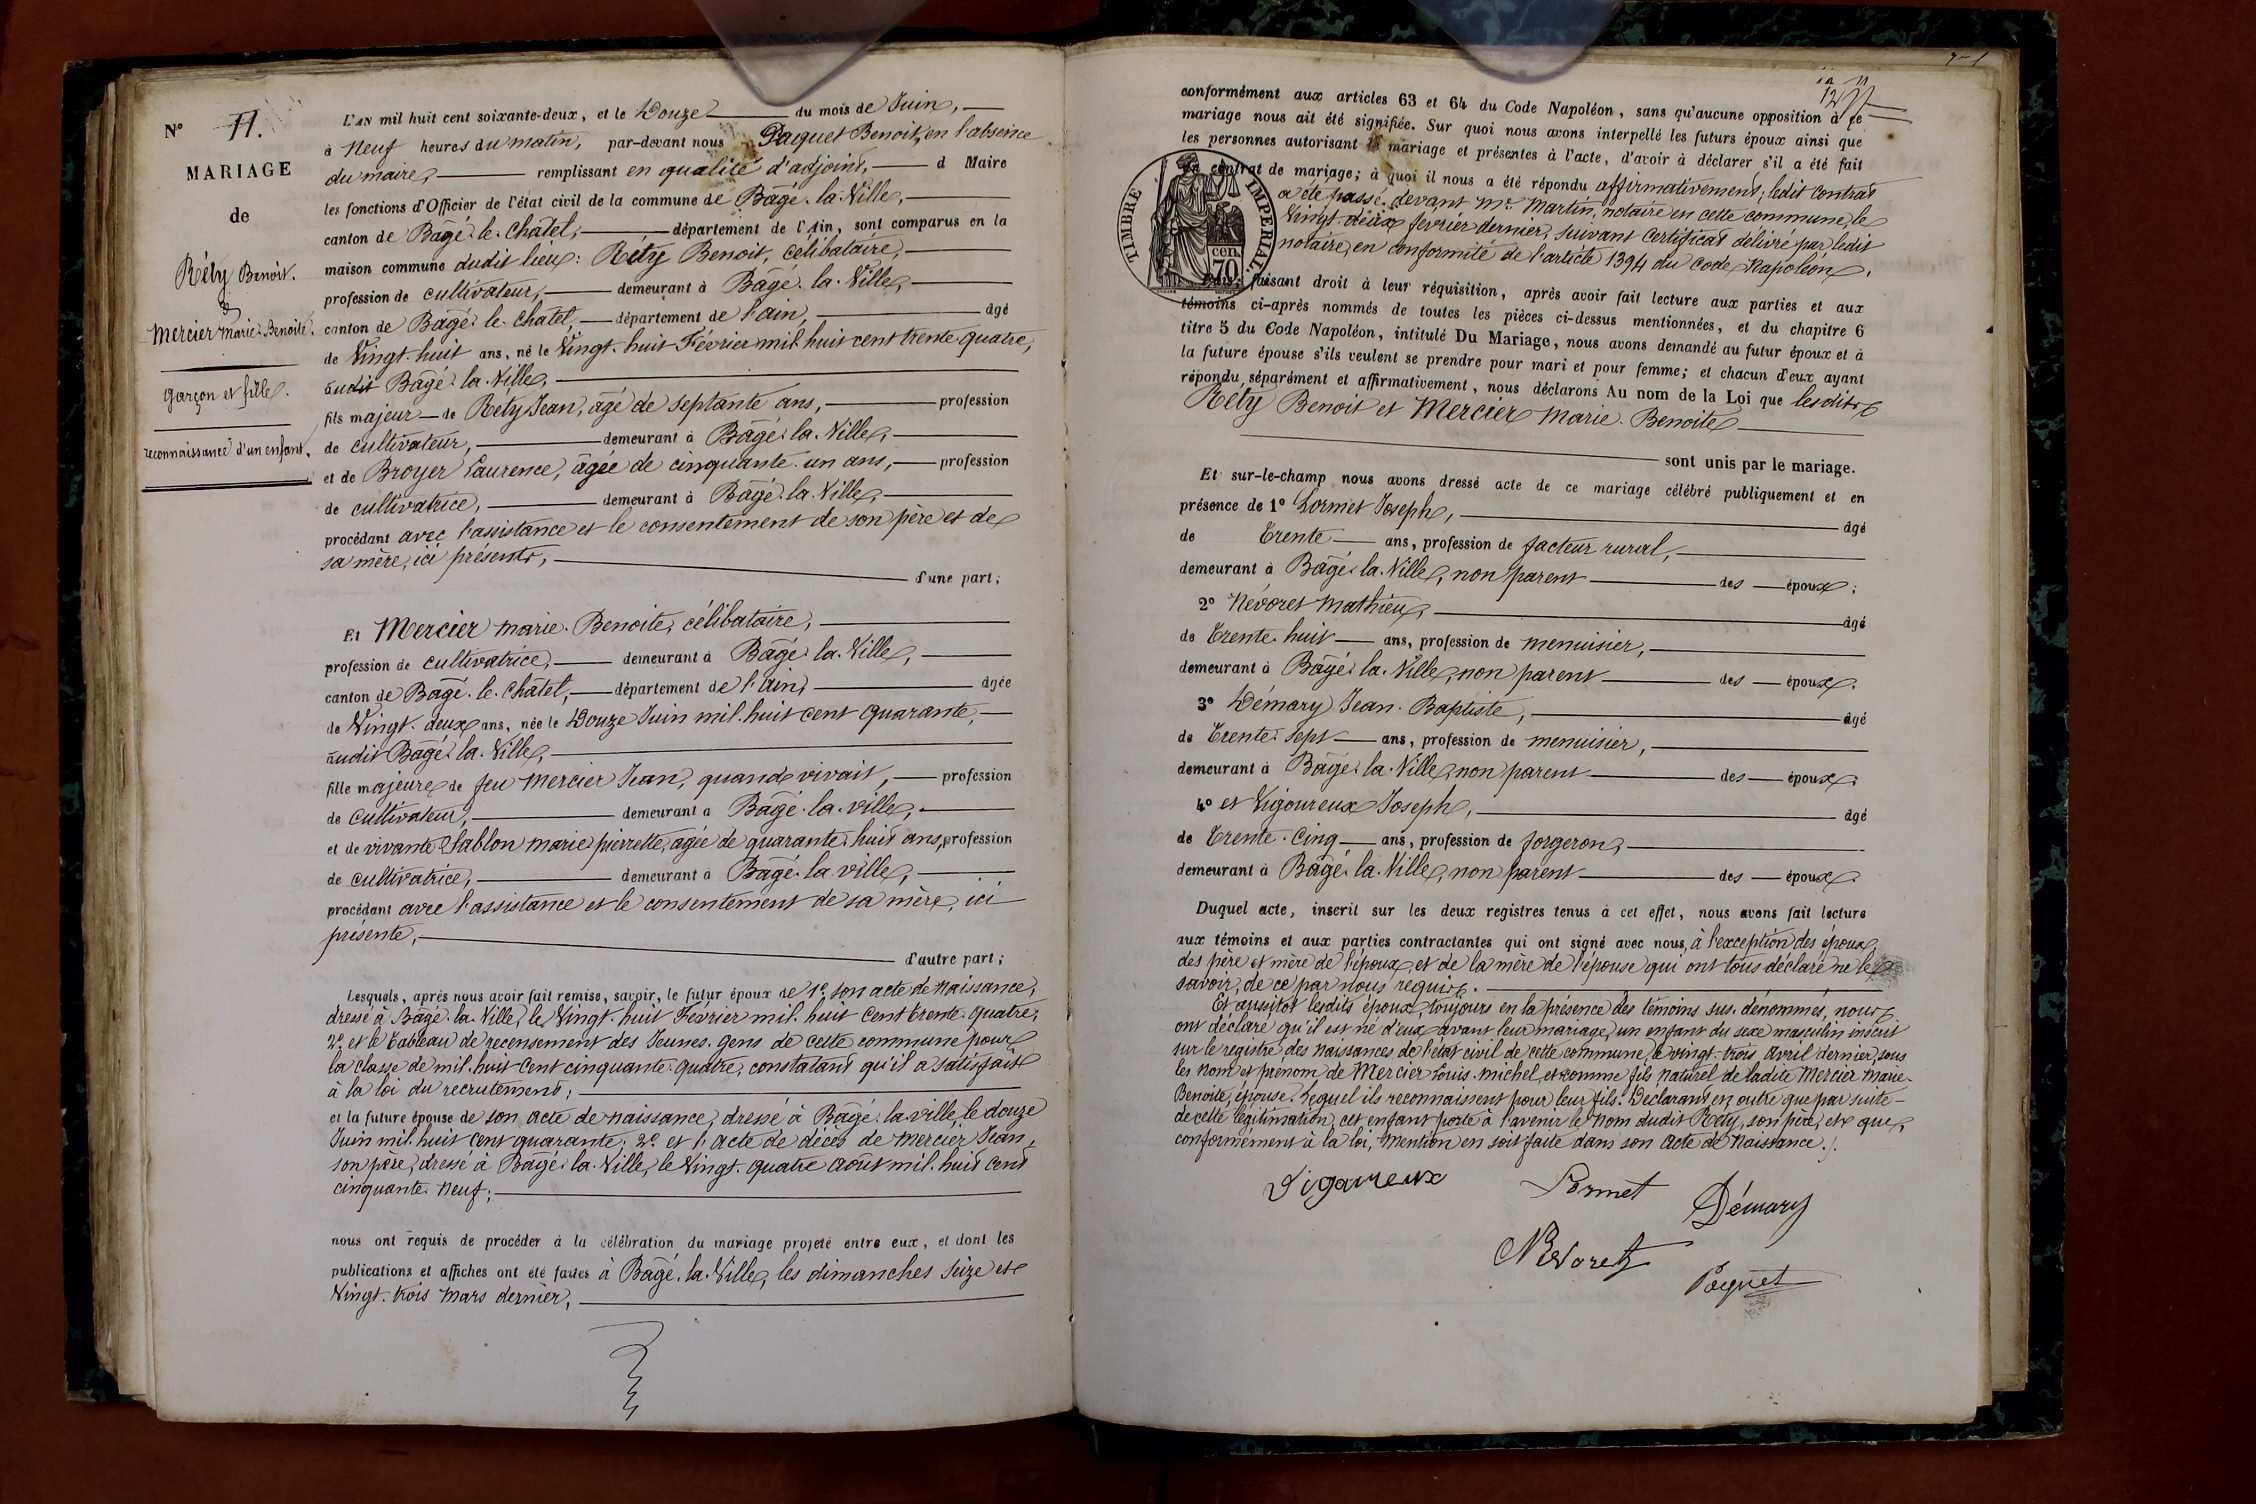 N° 11.
MARIAGE
de
Réty Benoit.
&
Mercier Marie-Benoite.
garçon et fille.
reconnaissance d'un enfant.
L'AN mil huit cent soixante-deux, et le Douze du mois de Juin,
à neuf heures du matin, par-devant nous Paquet Benoit, en l'absence
du maire, remplissant en qualité d'adjoint, d Maire
les fonctions d'Officier de l'état civil de la commune de Bâgé-la-Ville,
canton de Bâgé-le-Châtel, département de l'Ain, sont comparus en la
maison commune dudit lieu: Réty Benoit, célibataire,
profession de cultivateur, demeurant à Bâgé-la-Ville,
canton de Bâgé-le-Châtel, département de l'ain, âgé
de Vingt-huit ans, né le Vingt-huit Février mil huit cent trente quatre,
audit Bâgé-la-Ville,
fils majeur de Réty Jean, âgé de septante ans, profession
de cultivateur, demeurant à Bâgé-la-Ville,
et de Broyer Laurence, âgée de cinquante-un ans, profession
de cultivatrice, demeurant à Bâgé-la-Ville,
procédant avec l'assistance et le consentement de son père et de
sa mère, ici présents,
d'une part;
Et Mercier Marie-Benoite, célibataire,
profession de cultivatrice, demeurant à Bâgé-la-Ville,
canton de Bâgé-le-Châtel, département de l'Ain, âgée
de Vingt-deux ans, née le Douze Juin mil-huit cent quarante,
audit Bâgé-la-Ville,
fille majeure de feu Mercier Jean, quand vivait, profession
de cultivateur, demeurant à Bâgé-la-ville,
et de vivante Sablon marie pierrette, agée de quarante-huit ans, profession
de cultivatrice, demeurant à Bâgé-la-ville,
procédant avec l'assistance et le consentement de sa mère, ici
présente,
d'autre part;
Lesquels, après nous avoir fait remise, savoir, le futur époux de 1° son acte de naissance,
dressé à Bâgé-la-Ville, le Vingt-huit Février mil-huit cent trente-quatre,
2° et le tableau de recensement des Jeunes-gens de cette commune pour
la classe de mil-huit cent cinquante-quatre, constatant qu'il a satisfait
à la loi du recrutement;
et la future épouse de son acte de naissance, dressé à Bâgé-la-ville, le douze
Juin mil-huit cent quarante; 2° et l'acte de décès de Mercier Jean,
son père, dressé à Bâgé-la-Ville, le Vingt-quatre août mil-huit cent
cinquante-neuf;
nous ont requis de procéder à la célébration du mariage projeté entre eux, et dont les
publications et affiches ont été faites à Bâgé-la-Ville, les dimanches seize et
Vingt-trois Mars dernier,
conformément aux articles 63 et 64 du Code Napoléon, sans qu'aucune opposition à ce
mariage nous ait été signifiée. Sur quoi nous avons interpellé les futurs époux ainsi que
les personnes autorisant le mariage et présentes à l'acte, d'avoir à déclarer s'il a été fait
contrat de mariage; à quoi il nous a été répondu affirmativement; ledit contrat
a été passé devant Me. Martin, notaire en cette commune, le
Vingt-deux février dernier, suivant certificat délivré par ledit
notaire, en conformité de l'article 1394 du Code Napoléon.
TIMBRE IMPERIAL
cen.
70
faisant droit à leur réquisition, après avoir fait lecture aux parties et aux
témoins ci-après nommés de toutes les pièces ci-dessus mentionnées, et du chapitre 6
titre 5 du Code Napoléon, intitulé Du Mariage, nous avons demandé au futur époux et à
la future épouse s'ils veulent se prendre pour mari et pour femme; et chacun d'eux ayant
répondu séparément et affirmativement, nous déclarons Au nom de la Loi que lesdits
Réty Benoit et Mercier Marie-Benoite
sont unis par le mariage.
Et sur-le-champ nous avons dressé acte de ce mariage célébré publiquement et en
présence de 1° Lormet Joseph, âgé
de Trente ans, profession de facteur rural,
demeurant à Bâgé-la-Ville, non parent des époux;
2° Névoret Mathieu, âgé
de Trente-huit ans, profession de menuisier,
demeurant à Bâgé-la-Ville, non parent des époux.
3° Démary Jean-Baptiste, âgé
de Trente-sept ans, profession de menuisier,
demeurant à Bâgé-la-Ville, non parent des époux.
4° et Vigoureux Joseph, âgé
de Trente-cinq ans, profession de forgeron,
demeurant à Bâgé-la-Ville, non parent des époux.
Duquel acte, inscrit sur les deux registres tenus à cet effet, nous avons fait lecture
aux témoins et aux parties contractantes qui ont signé avec nous, à l'exception des époux,
des père et mère de l'époux, et de la mère de l'épouse qui ont tous déclaré ne le
savoir, de ce par nous requis.
Et aussitôt lesdits époux, toujours en la présence des témoins sus-dénommés, nous
ont déclaré qu'il est né d'eux avant leur mariage, un enfant du sexe masculin inscrit
sur le registre des naissances de l'état civil de cette commune, le vingt-trois Avril dernier, sous
les nom et prénom de Mercier Louis-Michel, et comme fils naturel de ladite Mercier Marie-
Benoite, épouse. Lequel ils reconnaissent pour leur fils. Déclarant en outre que par suite
de cette légitimation, cet enfant porte à l'avenir le nom dudit Réty, son père, et que,
conformément à la loi, mention en soit faite dans son acte de Naissance./.
Vigoureux
Lormet
Démary
Nevoret
Paquet